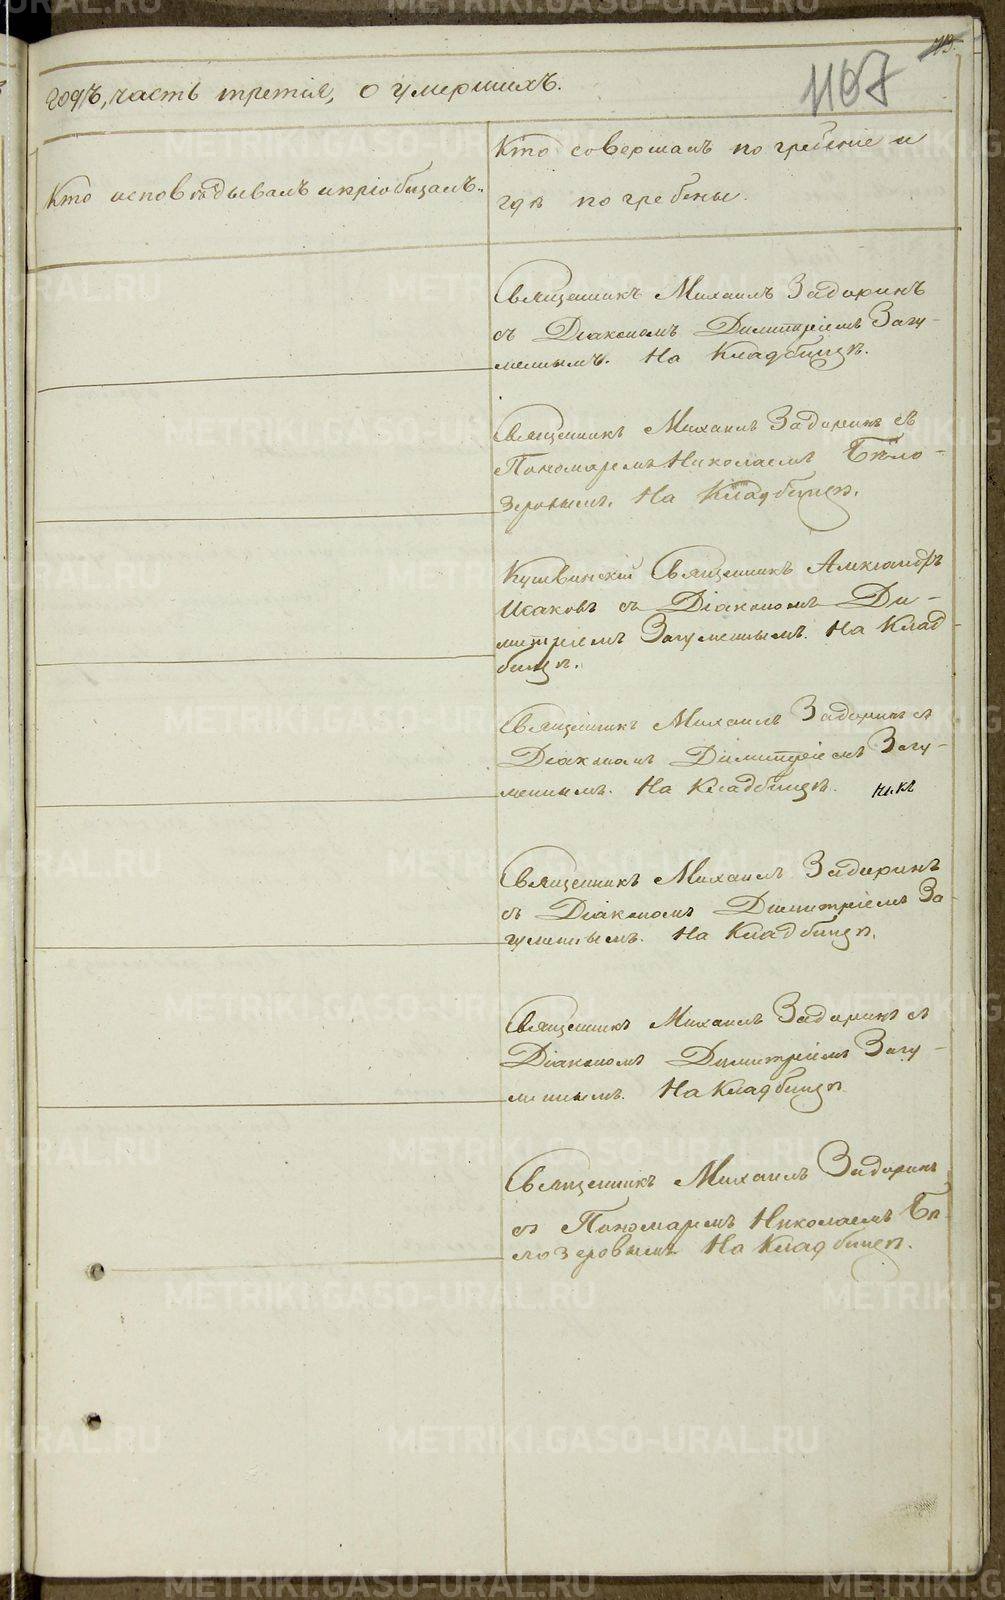 73.
1167
годъ, часть третія, о умершихъ.
Кто исповѣдывалъ и пріобщалъ.
Кто совершалъ погребеніе и
гдѣ погребены.
Священникъ Михаилъ Задоринъ
съ Діакономъ Димитріемъ Загу-
меннымъ. На Кладбищѣ.
Священникъ Михаилъ Задоринъ съ
Пономаремъ Николаемъ Бѣло-
зеровымъ. На Кладбищѣ.
Кушвинскій Священникъ Александръ
Исаковъ съ Діакономъ Ди-
митріемъ Загуменнымъ. На Клад
бищѣ.
Священникъ Михаилъ Задоринъ съ
Діакономъ Димитріемъ Загу-
меннымъ. На Кладбищѣ.
Священникъ Михаилъ Задоринъ
съ Діакономъ Димитріемъ За
гуменнымъ. На Кладбищѣ.
Священникъ Михаилъ Задоринъ съ
Діакономъ Димитріемъ Загу-
меннымъ. На Кладбищѣ.
Священникъ Михаилъ Задоринъ
съ Пономаремъ Николаемъ Бѣ-
лозеровымъ На Кладбищѣ.